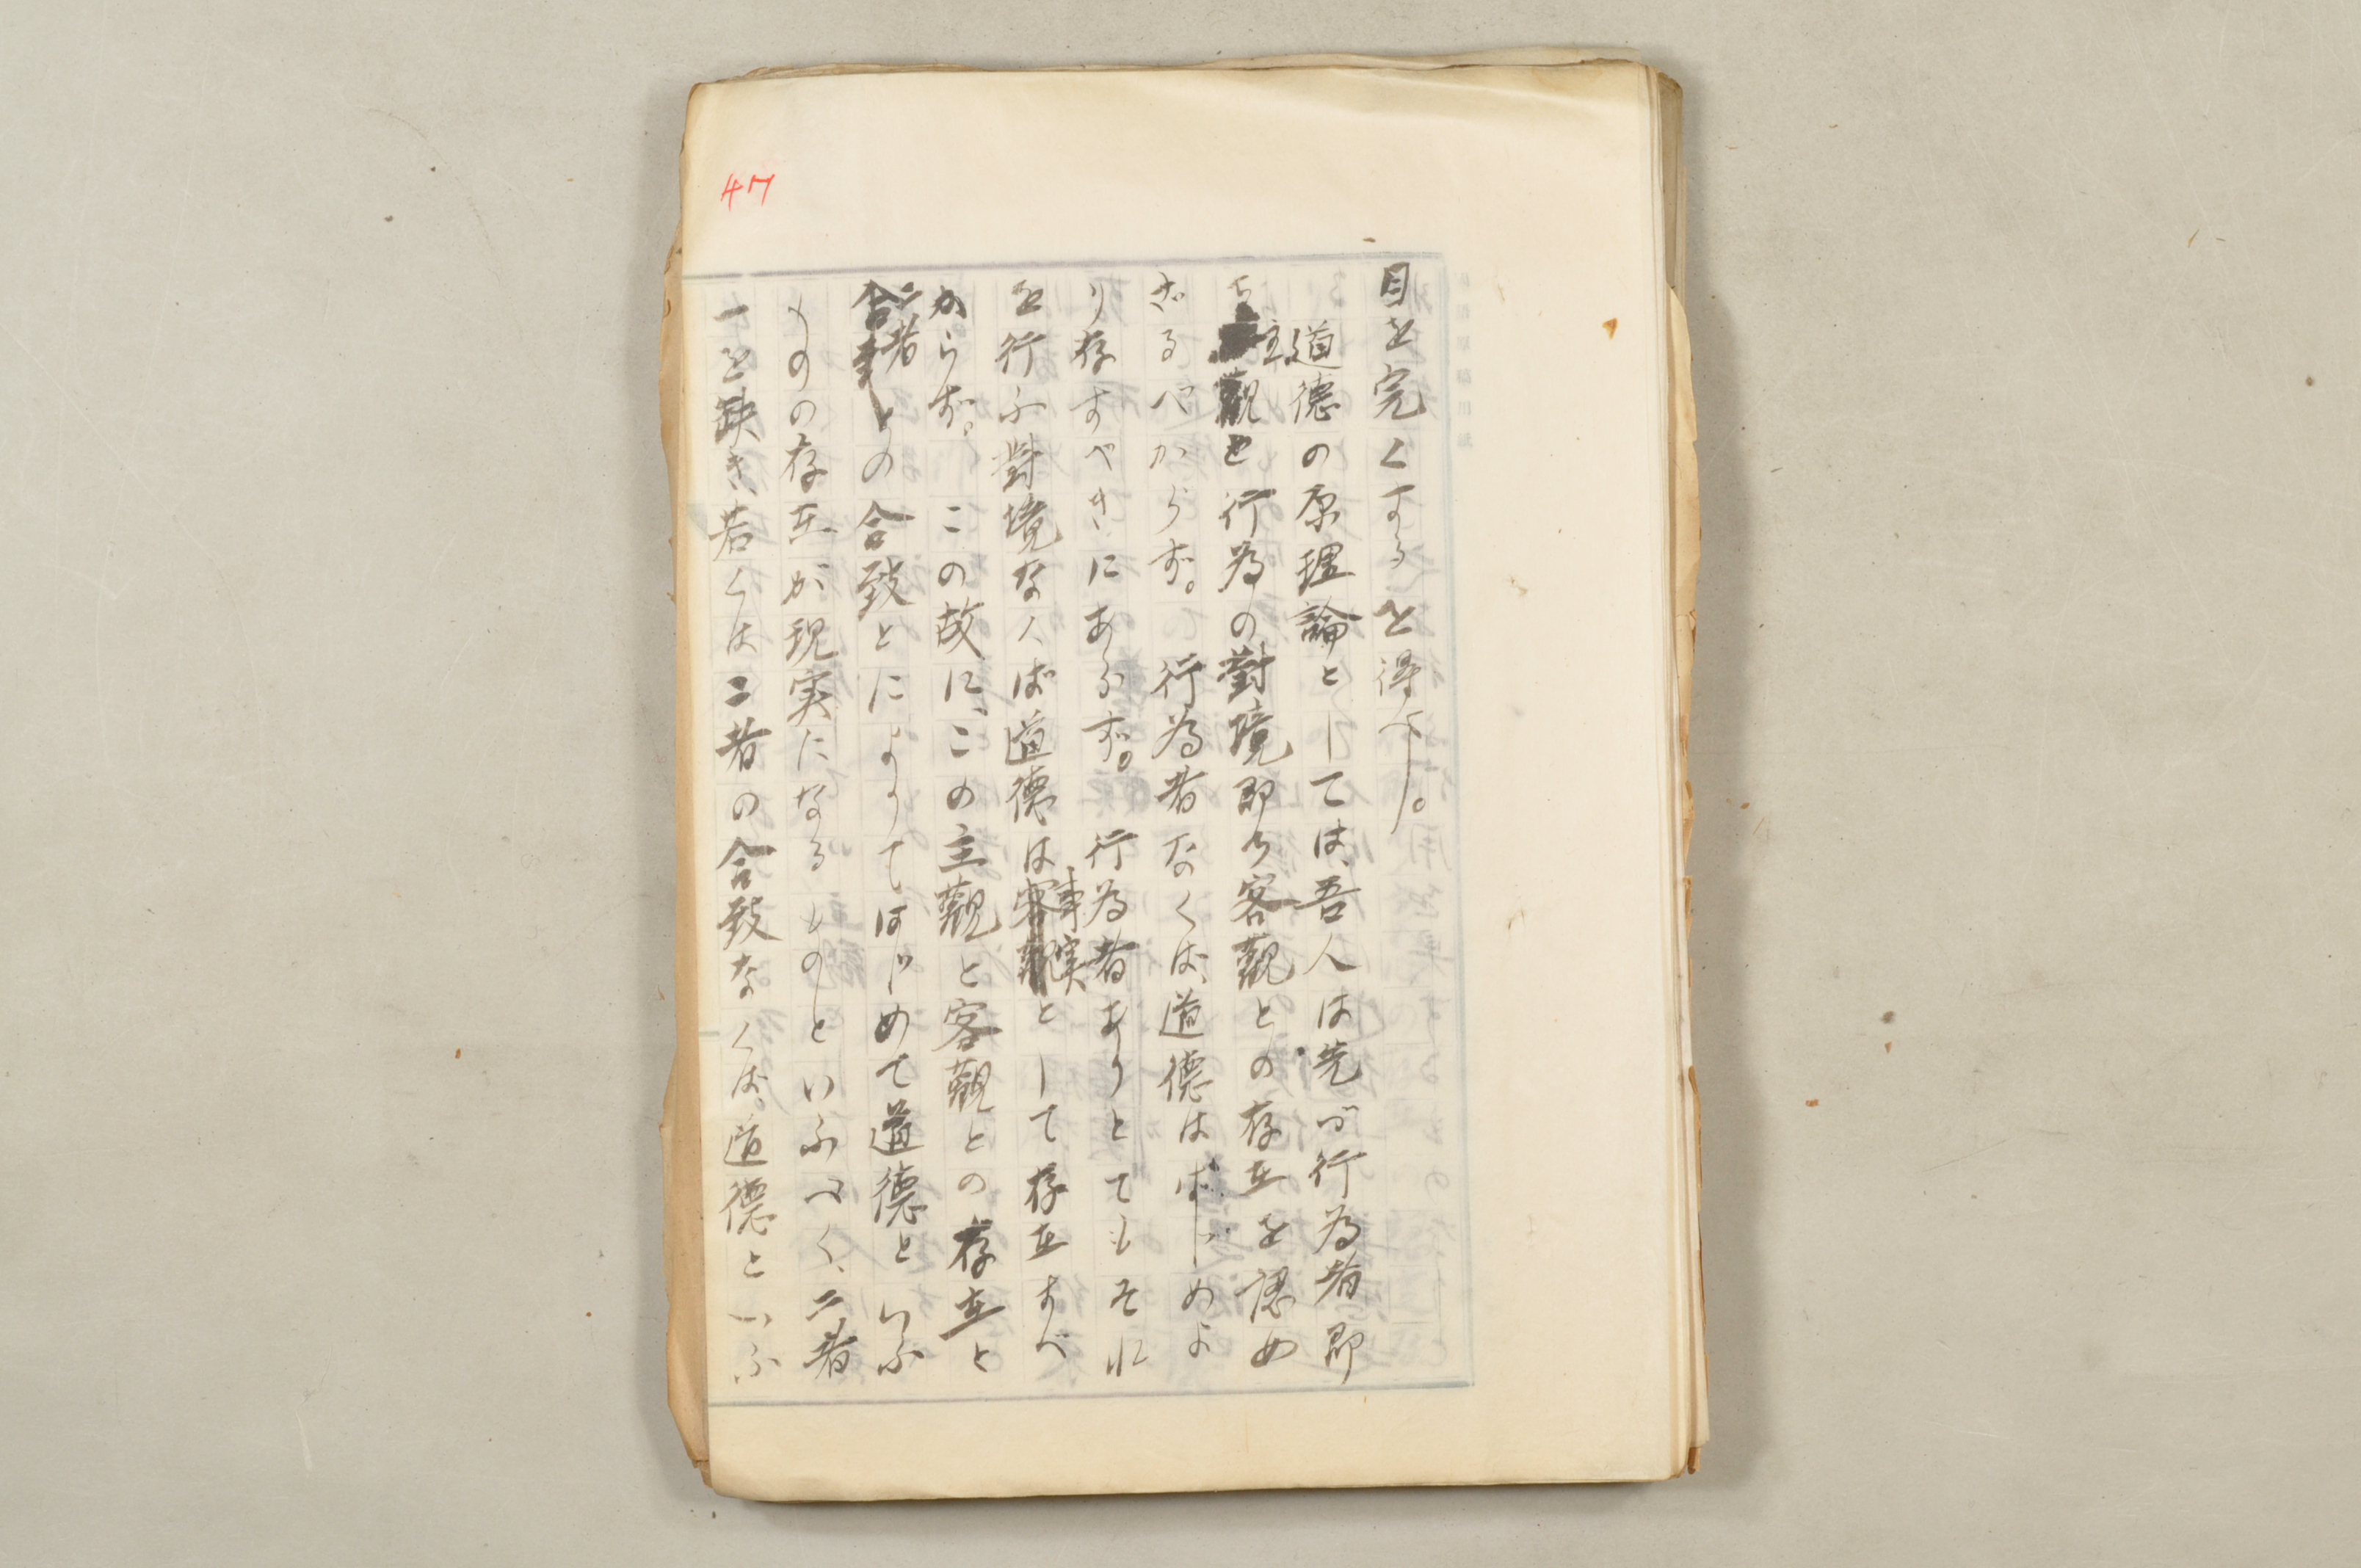 47
目を完くするを得べし。
道德の原理論としては、吾人は先づ行為者即
ち主觀と行為の對境即ち客觀との存在を認め
ざるべからず。行為者なくば、道德ははじめよ
り存すべきにあらず。行為者ありとてもそれ
を行ふ對境なくば道德は事実として存在すべ
からず。この故に、この主觀と客觀との存在と
二者との合致とによりてはじめて道德といふ
ものの存在が現実になるものといふべく、二者
一を缺き、若くは二者の合致なくば、道德といふ